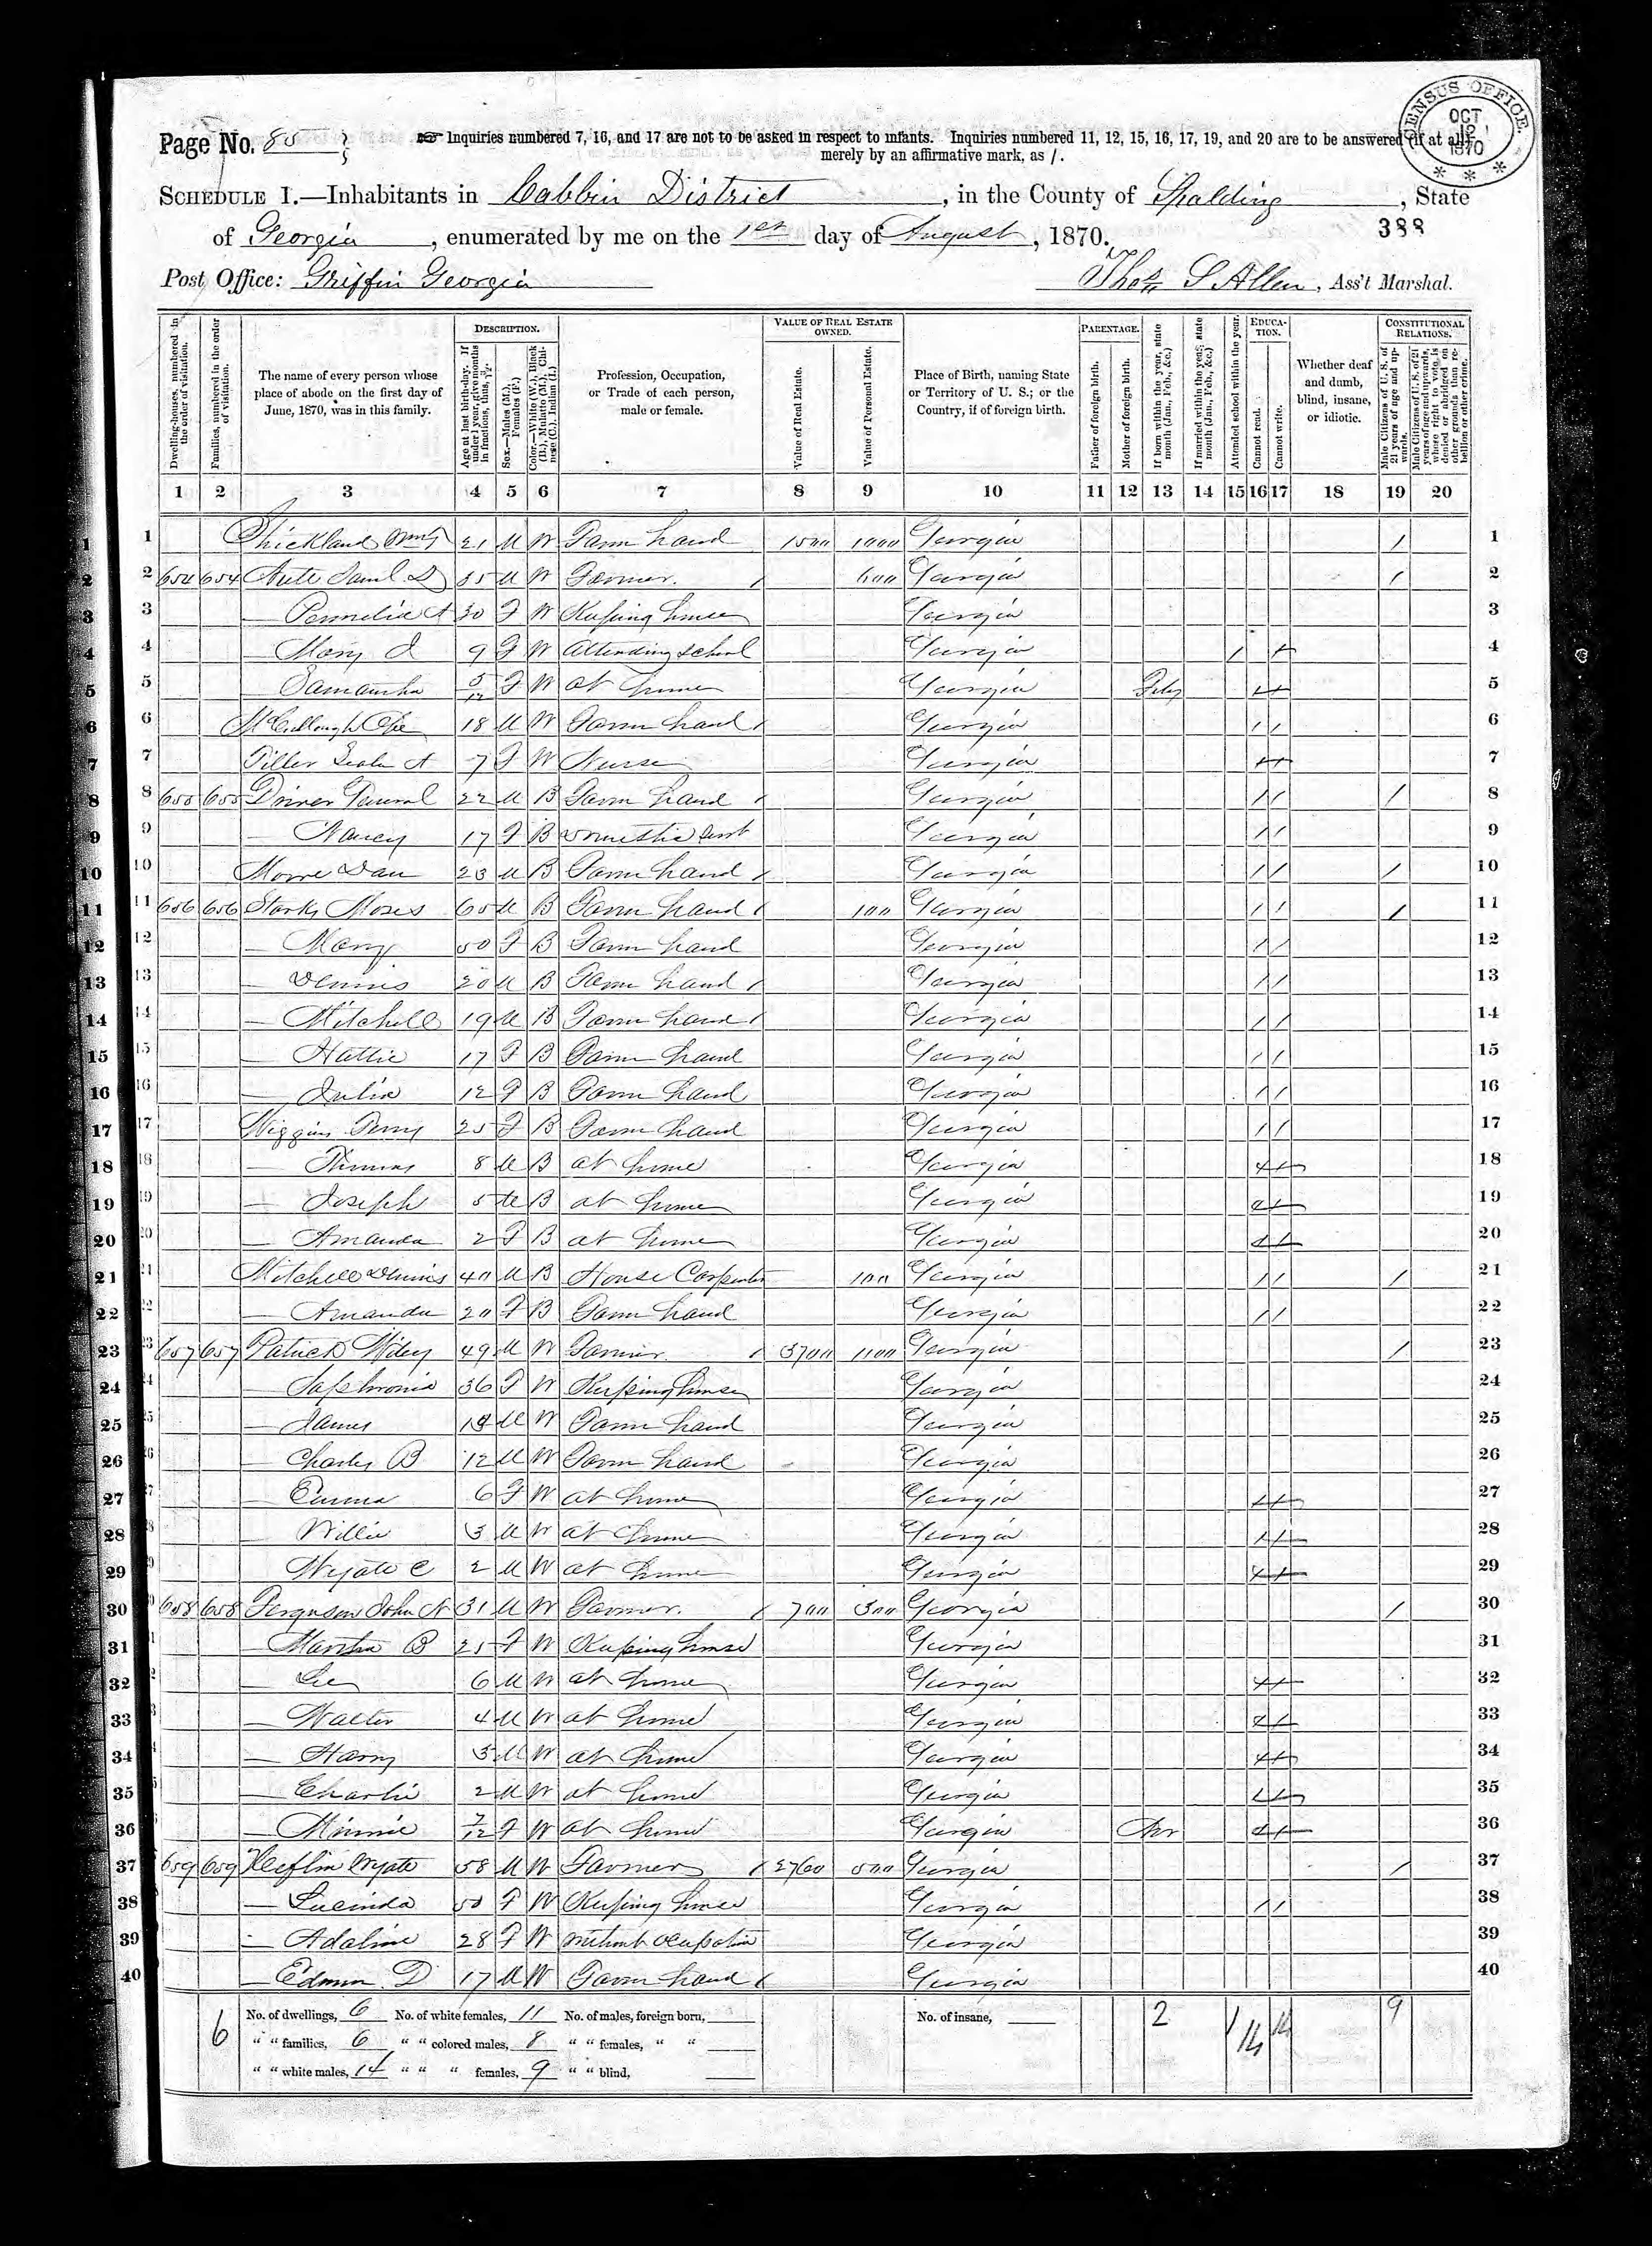 Page No. 85
☞ Inquiries numbered 7, 16, and 17 are not to be asked in respect to infants. Inquiries numbered 11, 12, 15, 16, 17, 19, and 20 are to be answered (if at all)
merely by an affirmative mark, as /.
CENSUS OFFICE. OCT 12 1870
SCHEDULE I.—Inhabitants in Cabbin District, in the County of Spalding, State
of Georgia, enumerated by me on the 1st day of August, 1870.
388
Post Office: Griffin Georgia
Thos S Allen, Ass't Marshal.
Dwelling-houses, numbered in the order of visitation.
Families, numbered in the order of visitation.
The name of every person whose place of abode on the first day of June, 1870, was in this family.
DESCRIPTION.
Age at last birth-day. If under 1 year, give months in fractions, thus, 3/12.
Sex.—Males (M.), Females (F.)
Color.—White (W.), Black (B.), Mulatto (M.), Chinese (C.), Indian (I.)
Profession, Occupation, or Trade of each person, male or female.
VALUE OF REAL ESTATE OWNED.
Value of Real Estate.
Value of Personal Estate.
Place of Birth, naming State or Territory of U. S.; or the Country, if of foreign birth.
PARENTAGE.
Father of foreign birth.
Mother of foreign birth.
If born within the year, state month (Jan., Feb., &c.)
If married within the year, state month (Jan., Feb., &c.)
Attended school within the year.
EDUCATION.
Cannot read.
Cannot write.
Whether deaf and dumb, blind, insane, or idiotic.
CONSTITUTIONAL RELATIONS.
Male Citizens of U. S. of 21 years of age and upwards.
Male Citizens of U. S. of 21 years of age and upwards, whose right to vote is denied or abridged on other grounds than rebellion or other crime.
1 2 3 4 5 6 7 8 9 10 11 12 13 14 15 16 17 18 19 20
1 21 M W Farm hand 1500 1000 Georgia / 1
2 654 654 Saml D 35 M W Farmer. 600 Georgia / 2
3 — Permelia A 30 F W Keeping house Georgia 3
4 — Mary J 9 F W Attending school Georgia / 4
5 — Samantha 5/12 F W at home Georgia Feby 5
6 McCullough 18 M W Farm hand Georgia / / 6
7 Tiller A 7 F W Nurse Georgia 7
8 655 655 Driver General 22 M B Farm hand Georgia / / / 8
9 — Nancy 17 F B Domestic Servt Georgia / / 9
10 Moore Dan 23 M B Farm hand Georgia / / / 10
11 656 656 Starks Moses 65 M B Farm hand 100 Georgia / / / 11
12 — Mary 50 F B Farm hand Georgia / / 12
13 — Dennis 20 M B Farm hand Georgia / / 13
14 — Mitchell 19 M B Farm hand Georgia / / 14
15 — Hattie 17 F B Farm hand Georgia / / 15
16 — Julia 12 F B Farm hand Georgia / / 16
17 Wiggins 25 F B Farm hand Georgia / / 17
18 — Thomas 8 M B at home Georgia 18
19 — Joseph 5 M B at home Georgia 19
20 — Amanda 2 F B at home Georgia 20
21 Mitchell Dennis 40 M B House Carpenter 100 Georgia / / / 21
22 — Amanda 20 F B Farm hand Georgia / / 22
23 657 657 Patrick Wiley 49 M W Farmer. 3700 1100 Georgia / 23
24 — Saphronia 36 F W Keeping house Georgia 24
25 — James M W Farm hand Georgia 25
26 — Charley B 12 M W Farm hand Georgia 26
27 — Emma 6 F W at home Georgia 27
28 — Willie 3 M W at home Georgia 28
29 — Wyatt C 2 M W at home Georgia 29
30 658 658 Ferguson John N 31 M W Farmer. 700 300 Georgia / 30
31 — Martha B 25 F W Keeping house Georgia 31
32 — Lee 6 M W at home Georgia 32
33 — Walter 4 M W at home Georgia 33
34 — Harry 3 M W at home Georgia 34
35 — Charlie 2 M W at home Georgia 35
36 — Minnie 7/12 F W at home Georgia 36
37 659 659 Heflin Wyatt 58 M W Farmer 2760 500 Georgia / 37
38 — Lucinda 50 F W Keeping house Georgia / / 38
39 — Adaline 28 F W without ocupation Georgia 39
40 — Edmon D 17 M W Farm hand Georgia 40
6 No. of dwellings, 6 No. of white females, 11 No. of males, foreign born, No. of insane, 2 1 14 14 9
" " families, 6 " " colored males, 8 " " females, " "
" " white males, 14 " " " females, 9 " " blind,